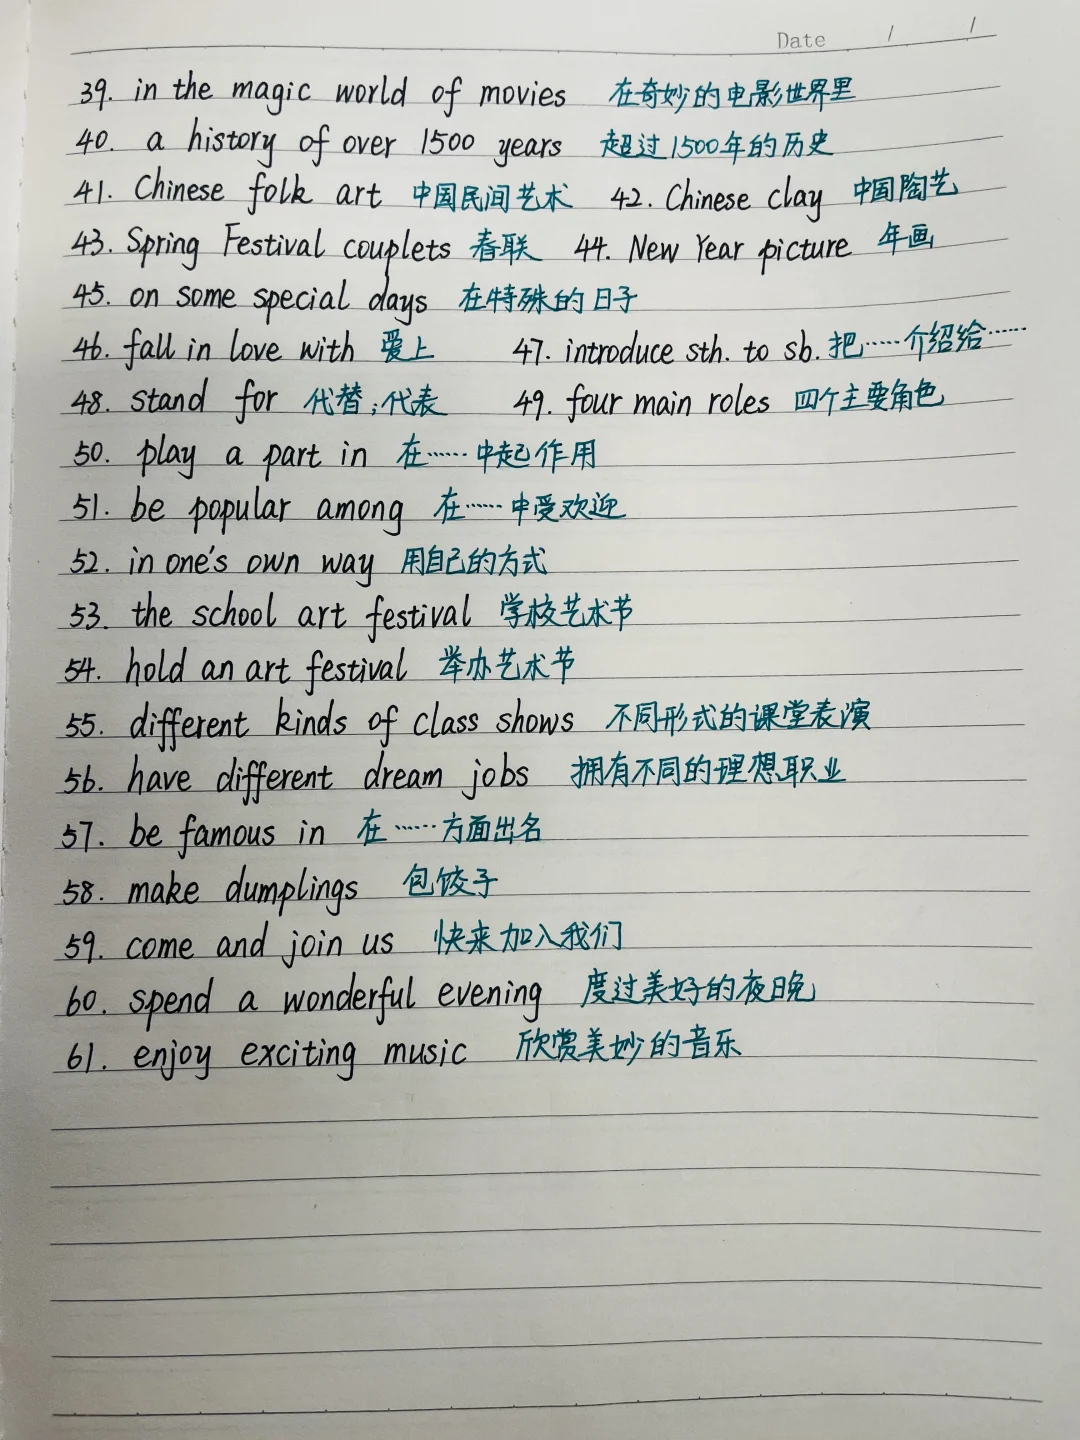 Date / /
39. in the magic world of movies 在奇妙的电影世界里
40. a history of over 1500 years 超过1500年的历史
41. Chinese folk art 中国民间艺术 42. Chinese clay 中国陶艺
43. Spring Festival couplets 春联 44. New Year picture 年画
45. on some special days 在特殊的日子
46. fall in love with 爱上 47. introduce sth. to sb. 把……介绍给……
48. stand for 代替;代表 49. four main roles 四个主要角色
50. play a part in 在……中起作用
51. be popular among 在……中受欢迎
52. in one's own way 用自己的方式
53. the school art festival 学校艺术节
54. hold an art festival 举办艺术节
55. different kinds of class shows 不同形式的课堂表演
56. have different dream jobs 拥有不同的理想职业
57. be famous in 在……方面出名
58. make dumplings 包饺子
59. come and join us 快来加入我们
60. spend a wonderful evening 度过美好的夜晚
61. enjoy exciting music 欣赏美妙的音乐